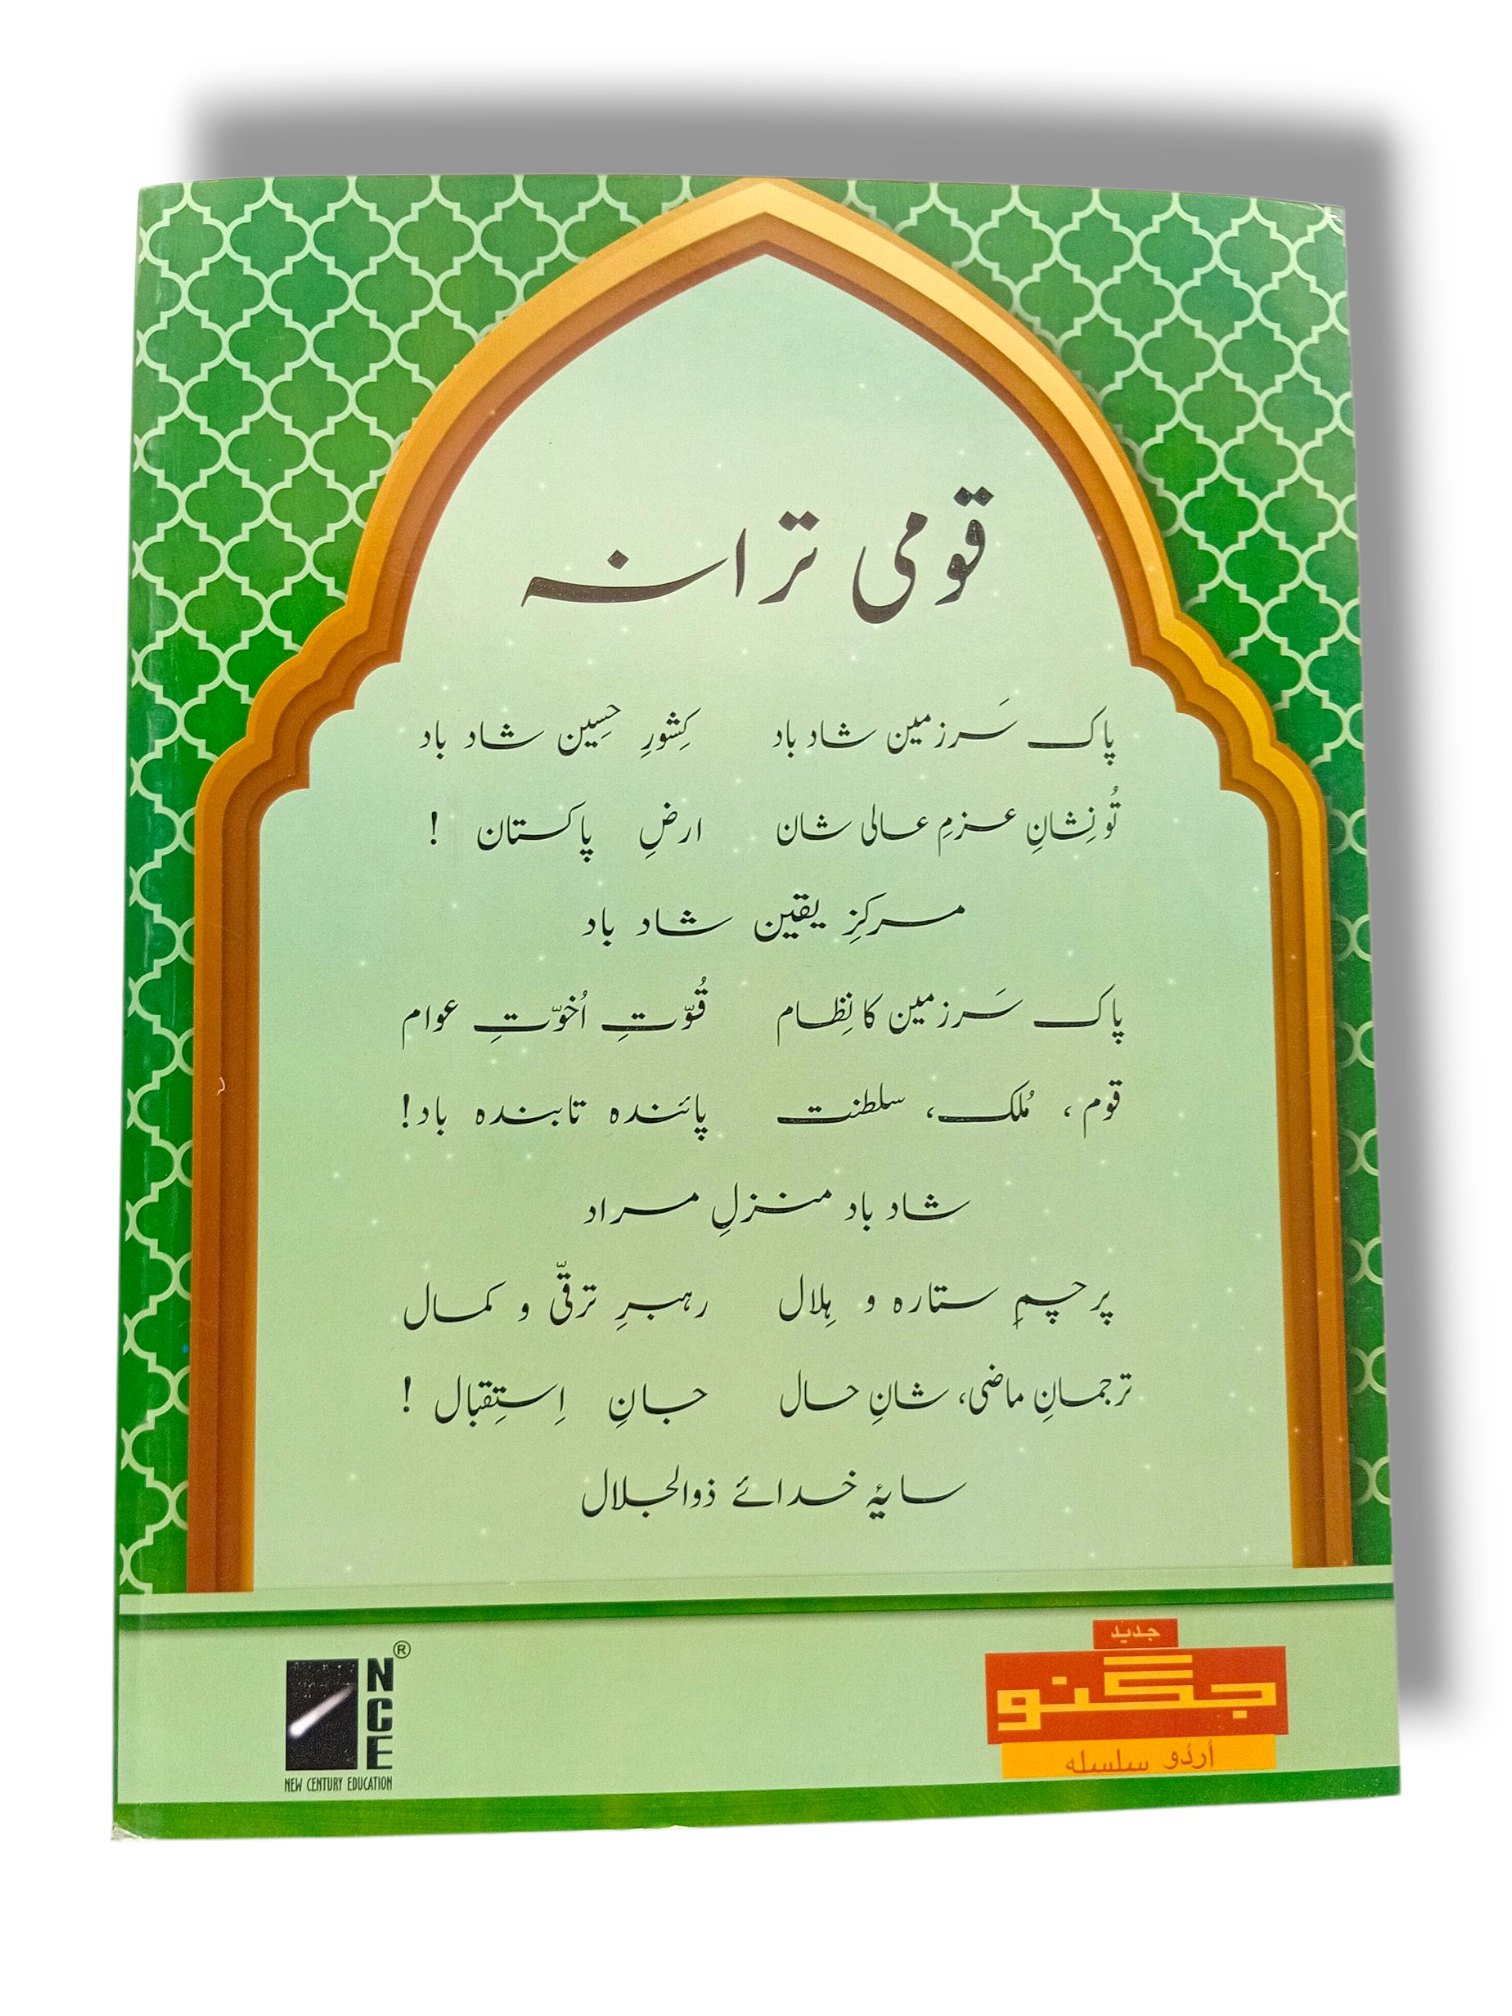 قومی ترانہ
پاک سَرزمین شاد باد کِشورِ حسِین شاد باد
تُو نِشانِ عزمِ عالی شان ارضِ پاکستان !
مرکزِ یقین شاد باد
پاک سَرزمین کا نِظام قُوّتِ اُخوّتِ عوام
قوم ، مُلک، سلطنت پائندہ تابندہ باد!
شاد باد منزلِ مراد
پرچمِ ستارہ و ہِلال رہبرِ ترقّی و کمال
ترجمانِ ماضی، شانِ حال جانِ اِستِقبال !
سایۂ خدائے ذوالجلال
NCE ®
NEW CENTURY EDUCATION
جدید
جگنو
اُردُو سلسلہ